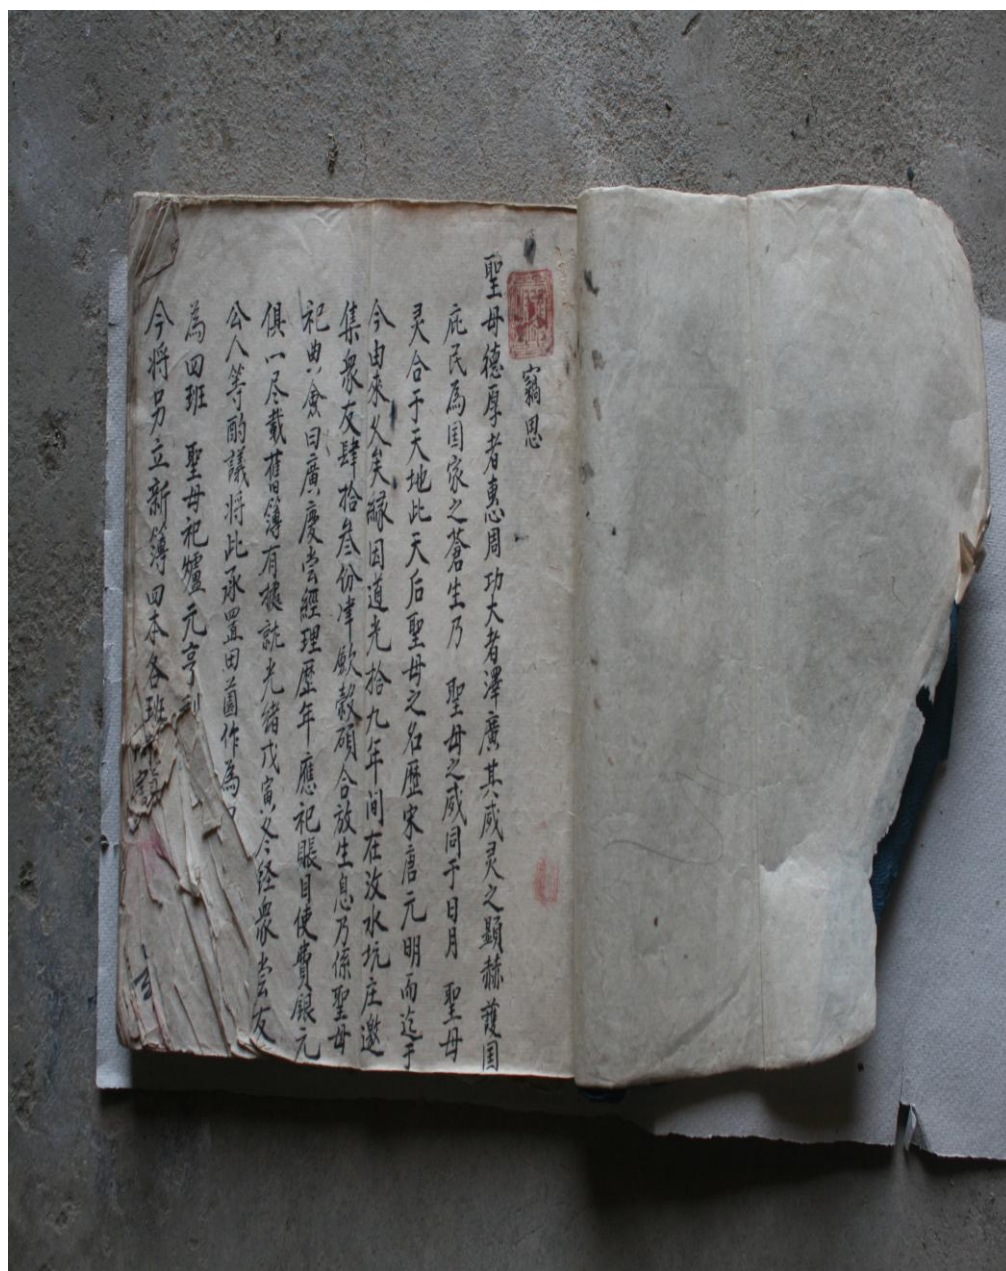 竊思
聖母德厚者惠周功大者澤廣其威灵之顯赫護国
庇民為国家之蒼生乃 聖母之威同于日月 聖母
灵合于天地此天后聖母之名歷宋唐元明而迄于
今由來久矣緣因道光拾九年间在汶水坑庄邀
集眾友肆拾叁份津歛穀碩合放生息乃係聖母
祀典會曰廣慶尝經理歷年應祀賬目使費銀元
俱一尽載舊簿有據訛光绪戊寅冬今经眾尝友
公人等酌議将此承置田園作為
為四班 聖母祀爐元亨利
今将另立新簿四本各班